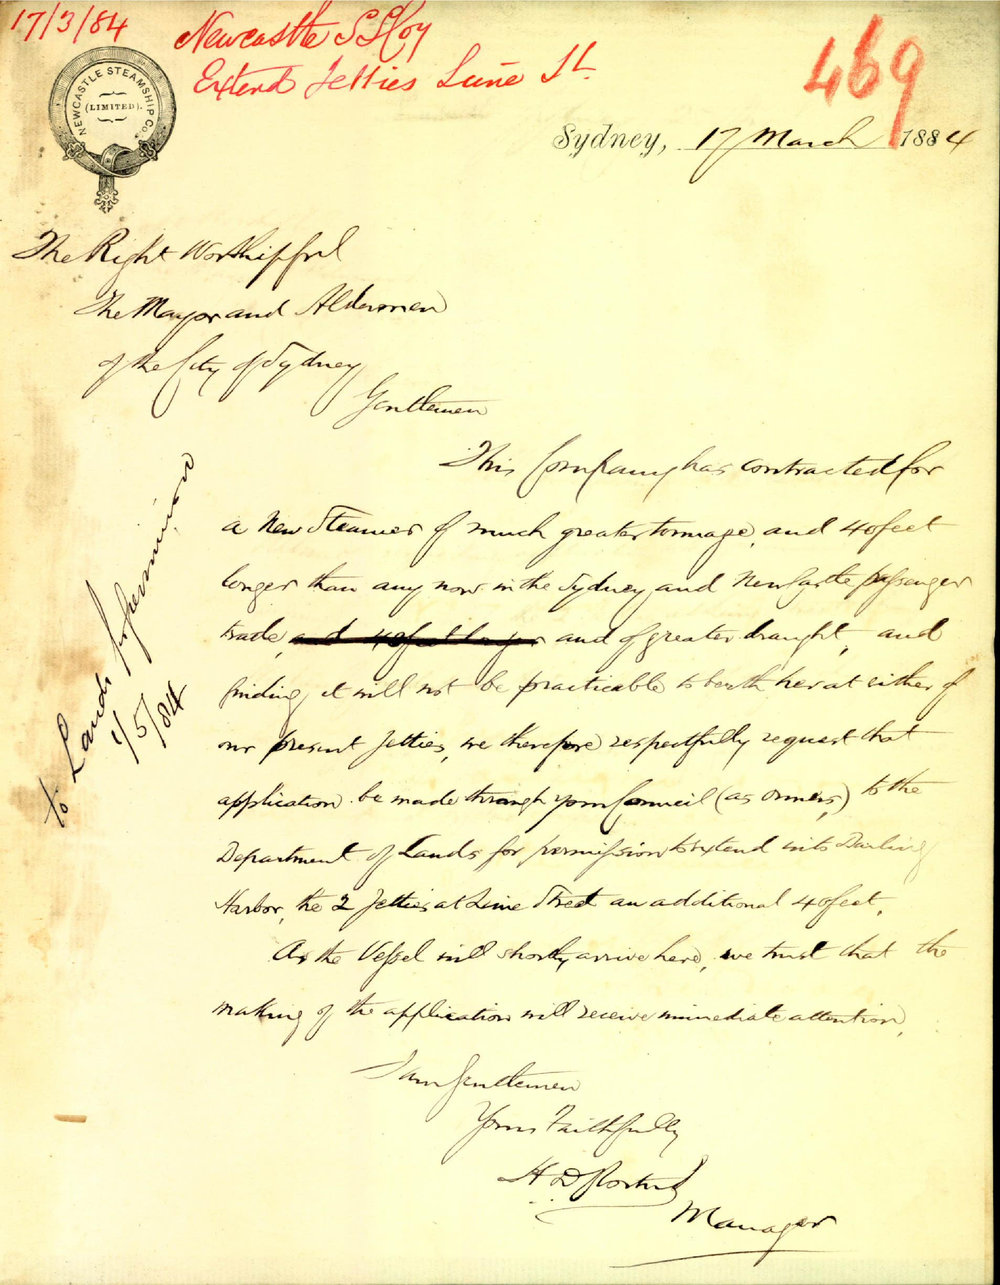 17/3/84
Newcastle S S Coy
Extend Jetties Lime St.
469
NEWCASTLE STEAMSHIP Co.
(LIMITED).
Sydney, 17 March 1884
The Right Worshipful
The Mayor and Aldermen
of the City of Sydney
Gentlemen
This Company has contracted for
a New Steamer of much greater tonnage, and 40 feet
longer than any now in the Sydney and Newcastle passenger
trade, and 40 feet longer and of greater draught, and
finding it will not be practicable to berth her at either of
our present Jetties, we therefore respectfully request that
application be made through your Council (as owners,) to the
Department of Lands for permission to extend into Darling
Harbor, the 2 Jetties at Lime Street an additional 40 feet.
As the Vessel will shortly arrive here, we trust that the
making of the application will receive immediate attention.
I am Gentlemen
Yours Faithfully
H D
Manager
to Lands for permission
1/5/84